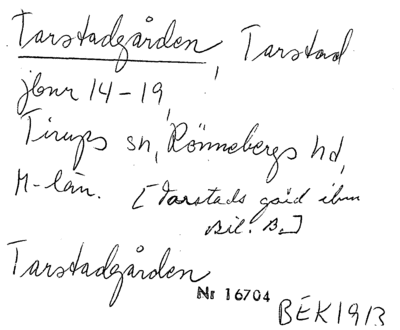 Tarstadgården, Tarstad
jbnr 14-19,
Tirups sn, Rönnebergs hd,
M-län. [Tarstads gård ibm
Bil. B.]
Tarstadgården
Nr 16704
BEK 1913